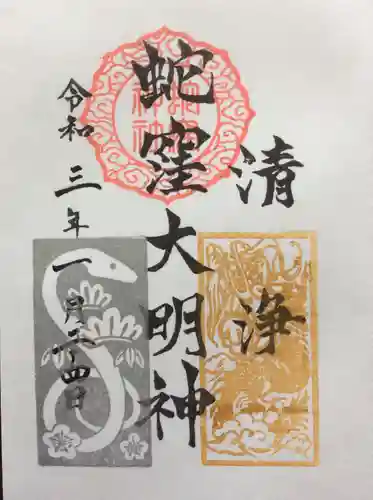 清浄
蛇窪大明神
令和三年一月二十四日